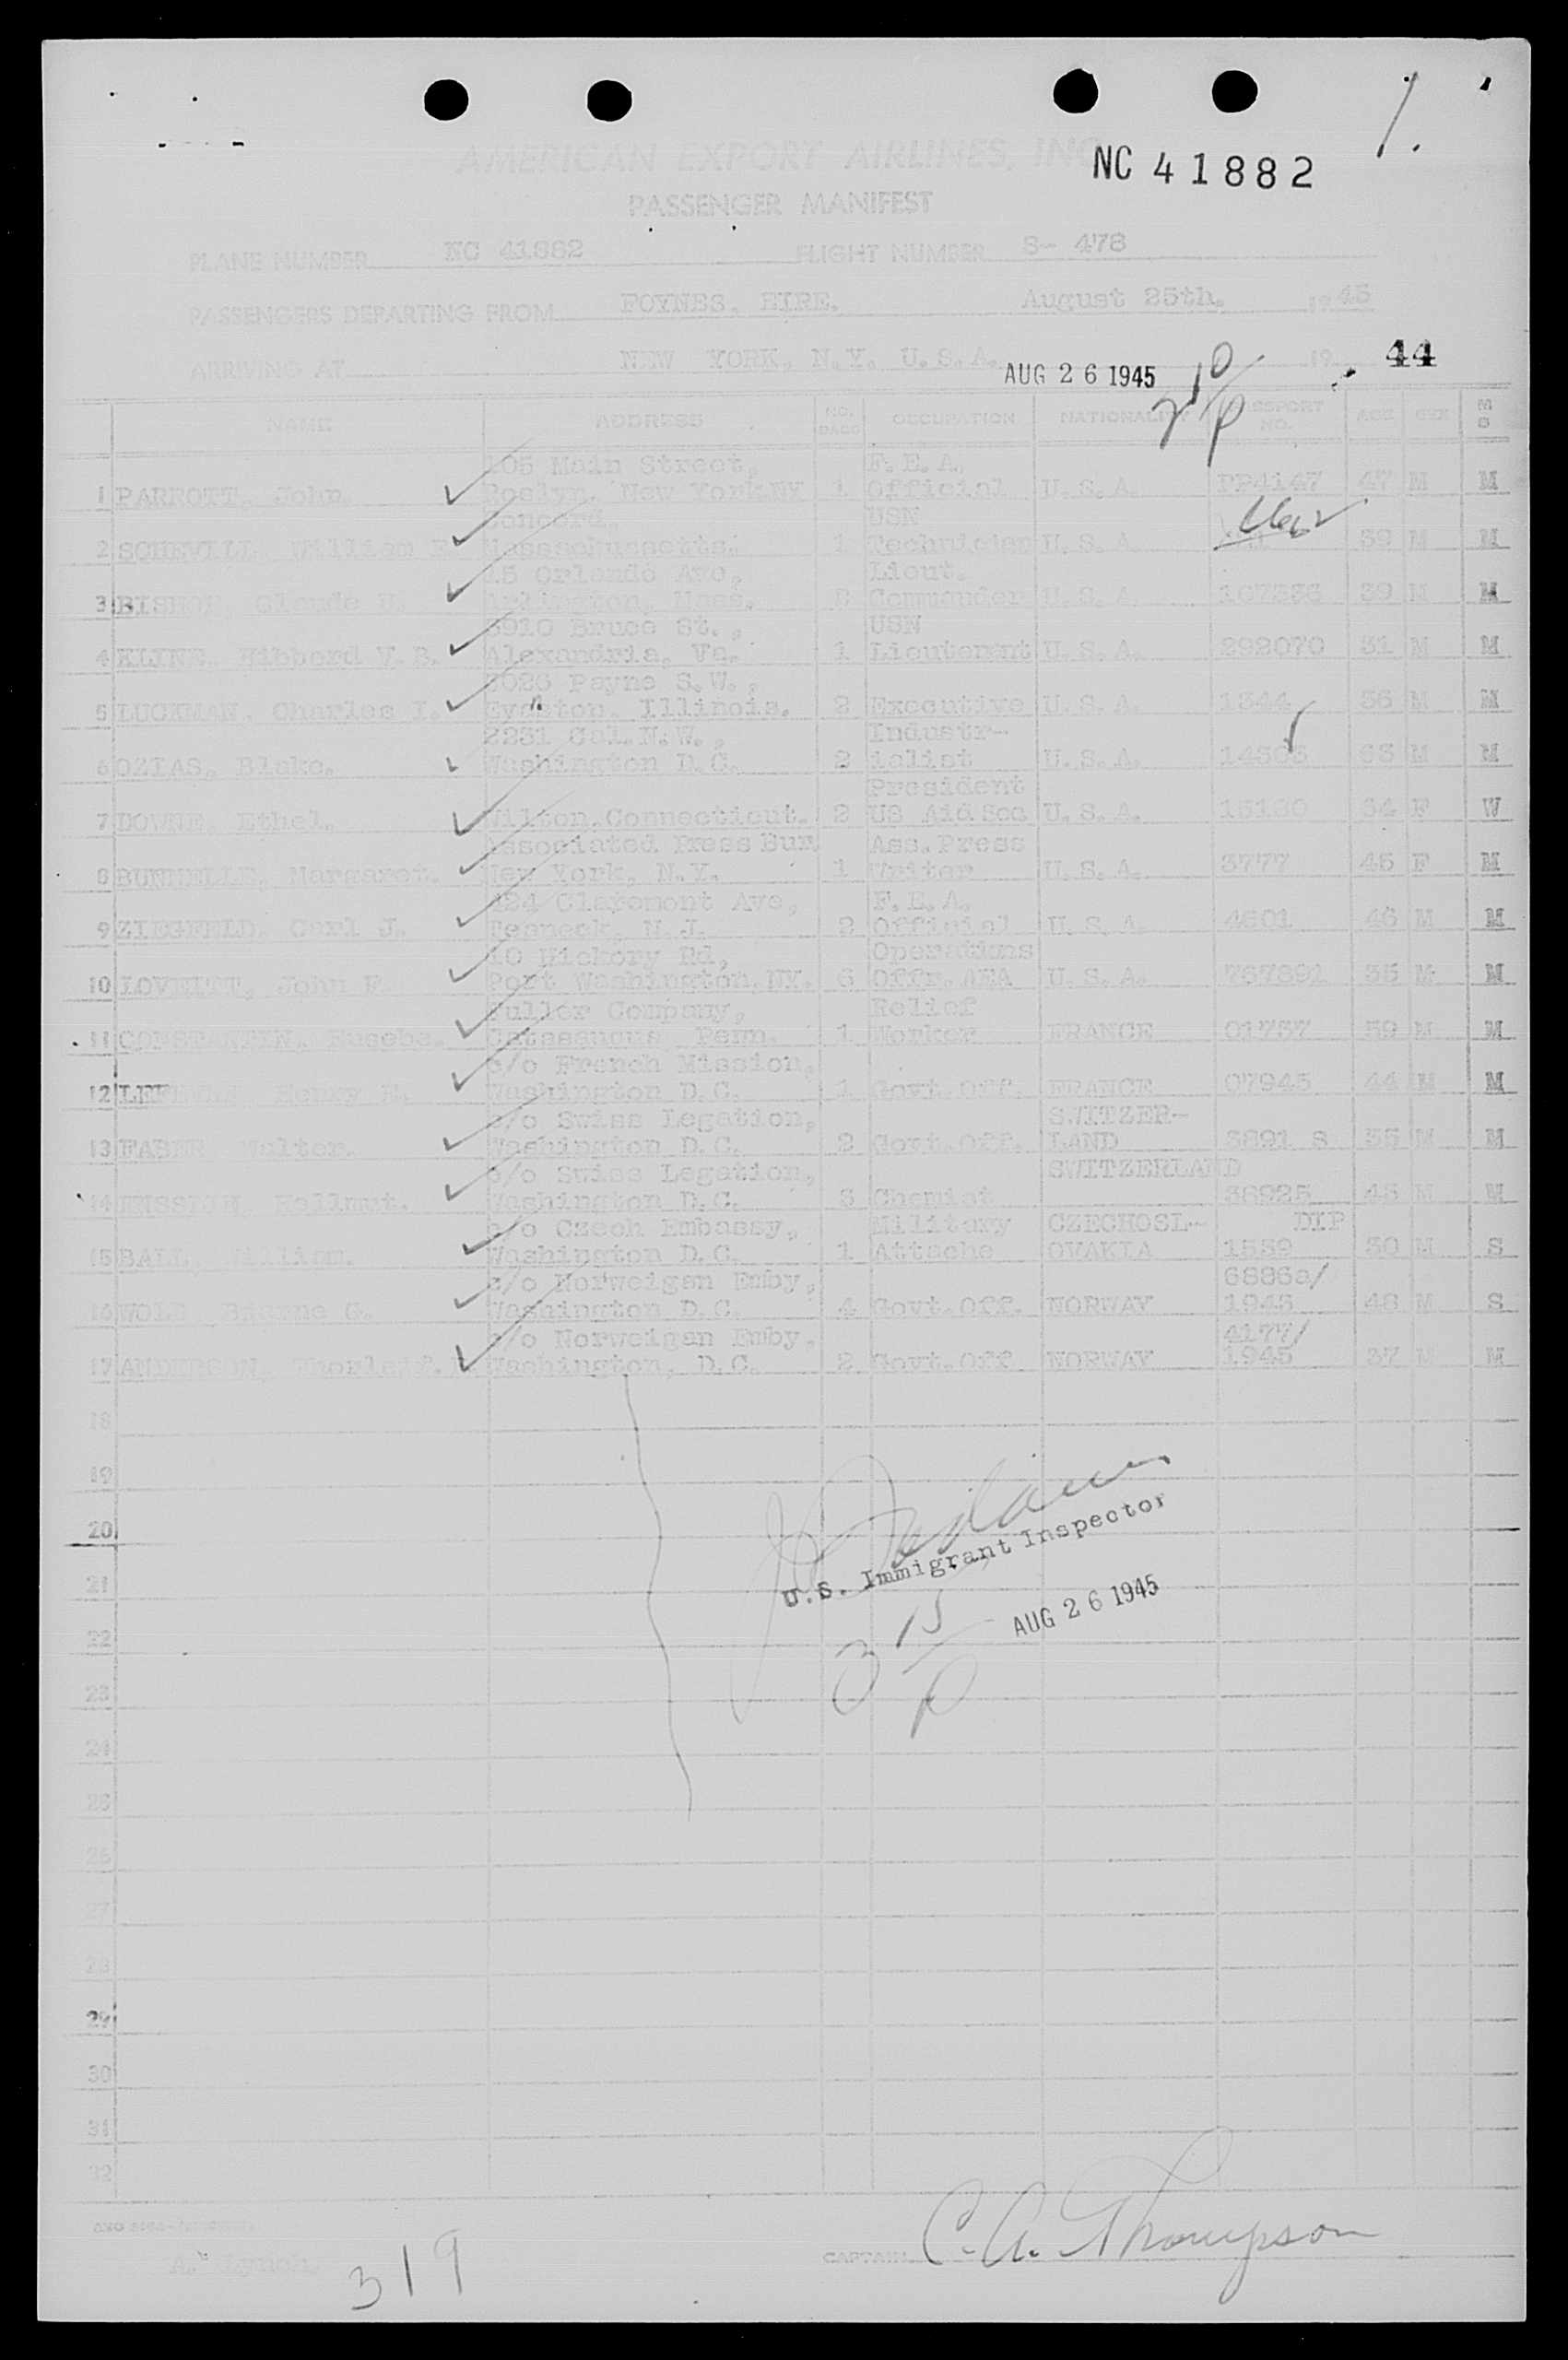 1.
AMERICAN EXPORT AIRLINES, INC.
NC 41882
PASSENGER MANIFEST
PLANE NUMBER NC 41882 FLIGHT NUMBER S- 478
PASSENGERS DEPARTING FROM FOYNES, EIRE. August 25th. 1945
ARRIVING AT NEW YORK, N.Y. U.S.A. AUG 26 1945 2 10/P 19 44
NAME ADDRESS NO. BAGS OCCUPATION NATIONALITY PASSPORT NO. AGE SEX M S
105 Main Street, F.E.A.
1 PARROTT, John. Roslyn, New York NY 1 Official U.S.A. PP4147 47 M M
Concord, USN
2 SCHEVILL, William E. Massachussetts. 1 Technician U.S.A. 39 M M
15 Orlando Ave, Lieut.
3 BISHOP, Claude U. Arlington, Mass. Commander U.S.A. 107336 39 M M
3910 Bruce St., USN
4 KLINE, Hibberd V. B. Alexandria, Va. 1 Lieutenant U.S.A. 292070 31 M M
Payne S.W.,
5 LUCKMAN, Charles I. Evanston, Illinois. 2 Executive U.S.A. 1344 36 M M
2231 Cal. N.W., Industr-
6 OZIAS, Blake. Washington D.C. 2 ialist U.S.A. 63 M M
President
7 DOWNE, Ethel. Wilton, Connecticut. 2 US Aid Soc U.S.A. 64 F W
Associated Press Bur. Ass. Press
8 BUNNELLE, Margaret. New York, N.Y. 1 Writer U.S.A. 3777 45 F M
424 Claremont Ave, F.E.A.
9 ZIEGFELD, Carl J. Teaneck, N.J. 2 Official U.S.A. 4601 46 M M
10 Hickory Rd, Operations
10 LOVEITT, John F. Port Washington, NY. 6 Offr. AEA U.S.A. 767891 35 M M
Fuller Company, Relief
11 CONSTANTIN, Eusebe. Catasauqua, Penn. 1 Worker FRANCE 01757 59 M M
c/o French Mission,
12 Henry Washington D.C. 1 Govt. Off. FRANCE 07945 44 M M
c/o Swiss Legation, SWITZER-
13 FABER Walter. Washington D.C. 2 Govt. Off. LAND 3891 S 35 M M
c/o Swiss Legation, SWITZERLAND
14 Hellmut. Washington D.C. 3 Chemist 36925 43 M M
c/o Czech Embassy, Military CZECHOSL- DIP
15 BALL William. Washington D.C. 1 Attache OVAKIA 1539 30 M S
c/o Norweigan Emby, 6886a/
16 WOLD Bjarne G. Washington D.C. 4 Govt. Off. NORWAY 1945 48 M S
c/o Norweigan Emby. 4177/
17 ANDERSON, Thorleif. Washington, D.C. 2 Govt. Off. NORWAY 1945 37 M M
18
19
20
21
U.S. Immigrant Inspector
AUG 26 1945
3 15/P
22
23
24
25
26
27
28
29
30
31
32
A. Lynch.
319
CAPTAIN C. A. Thompson